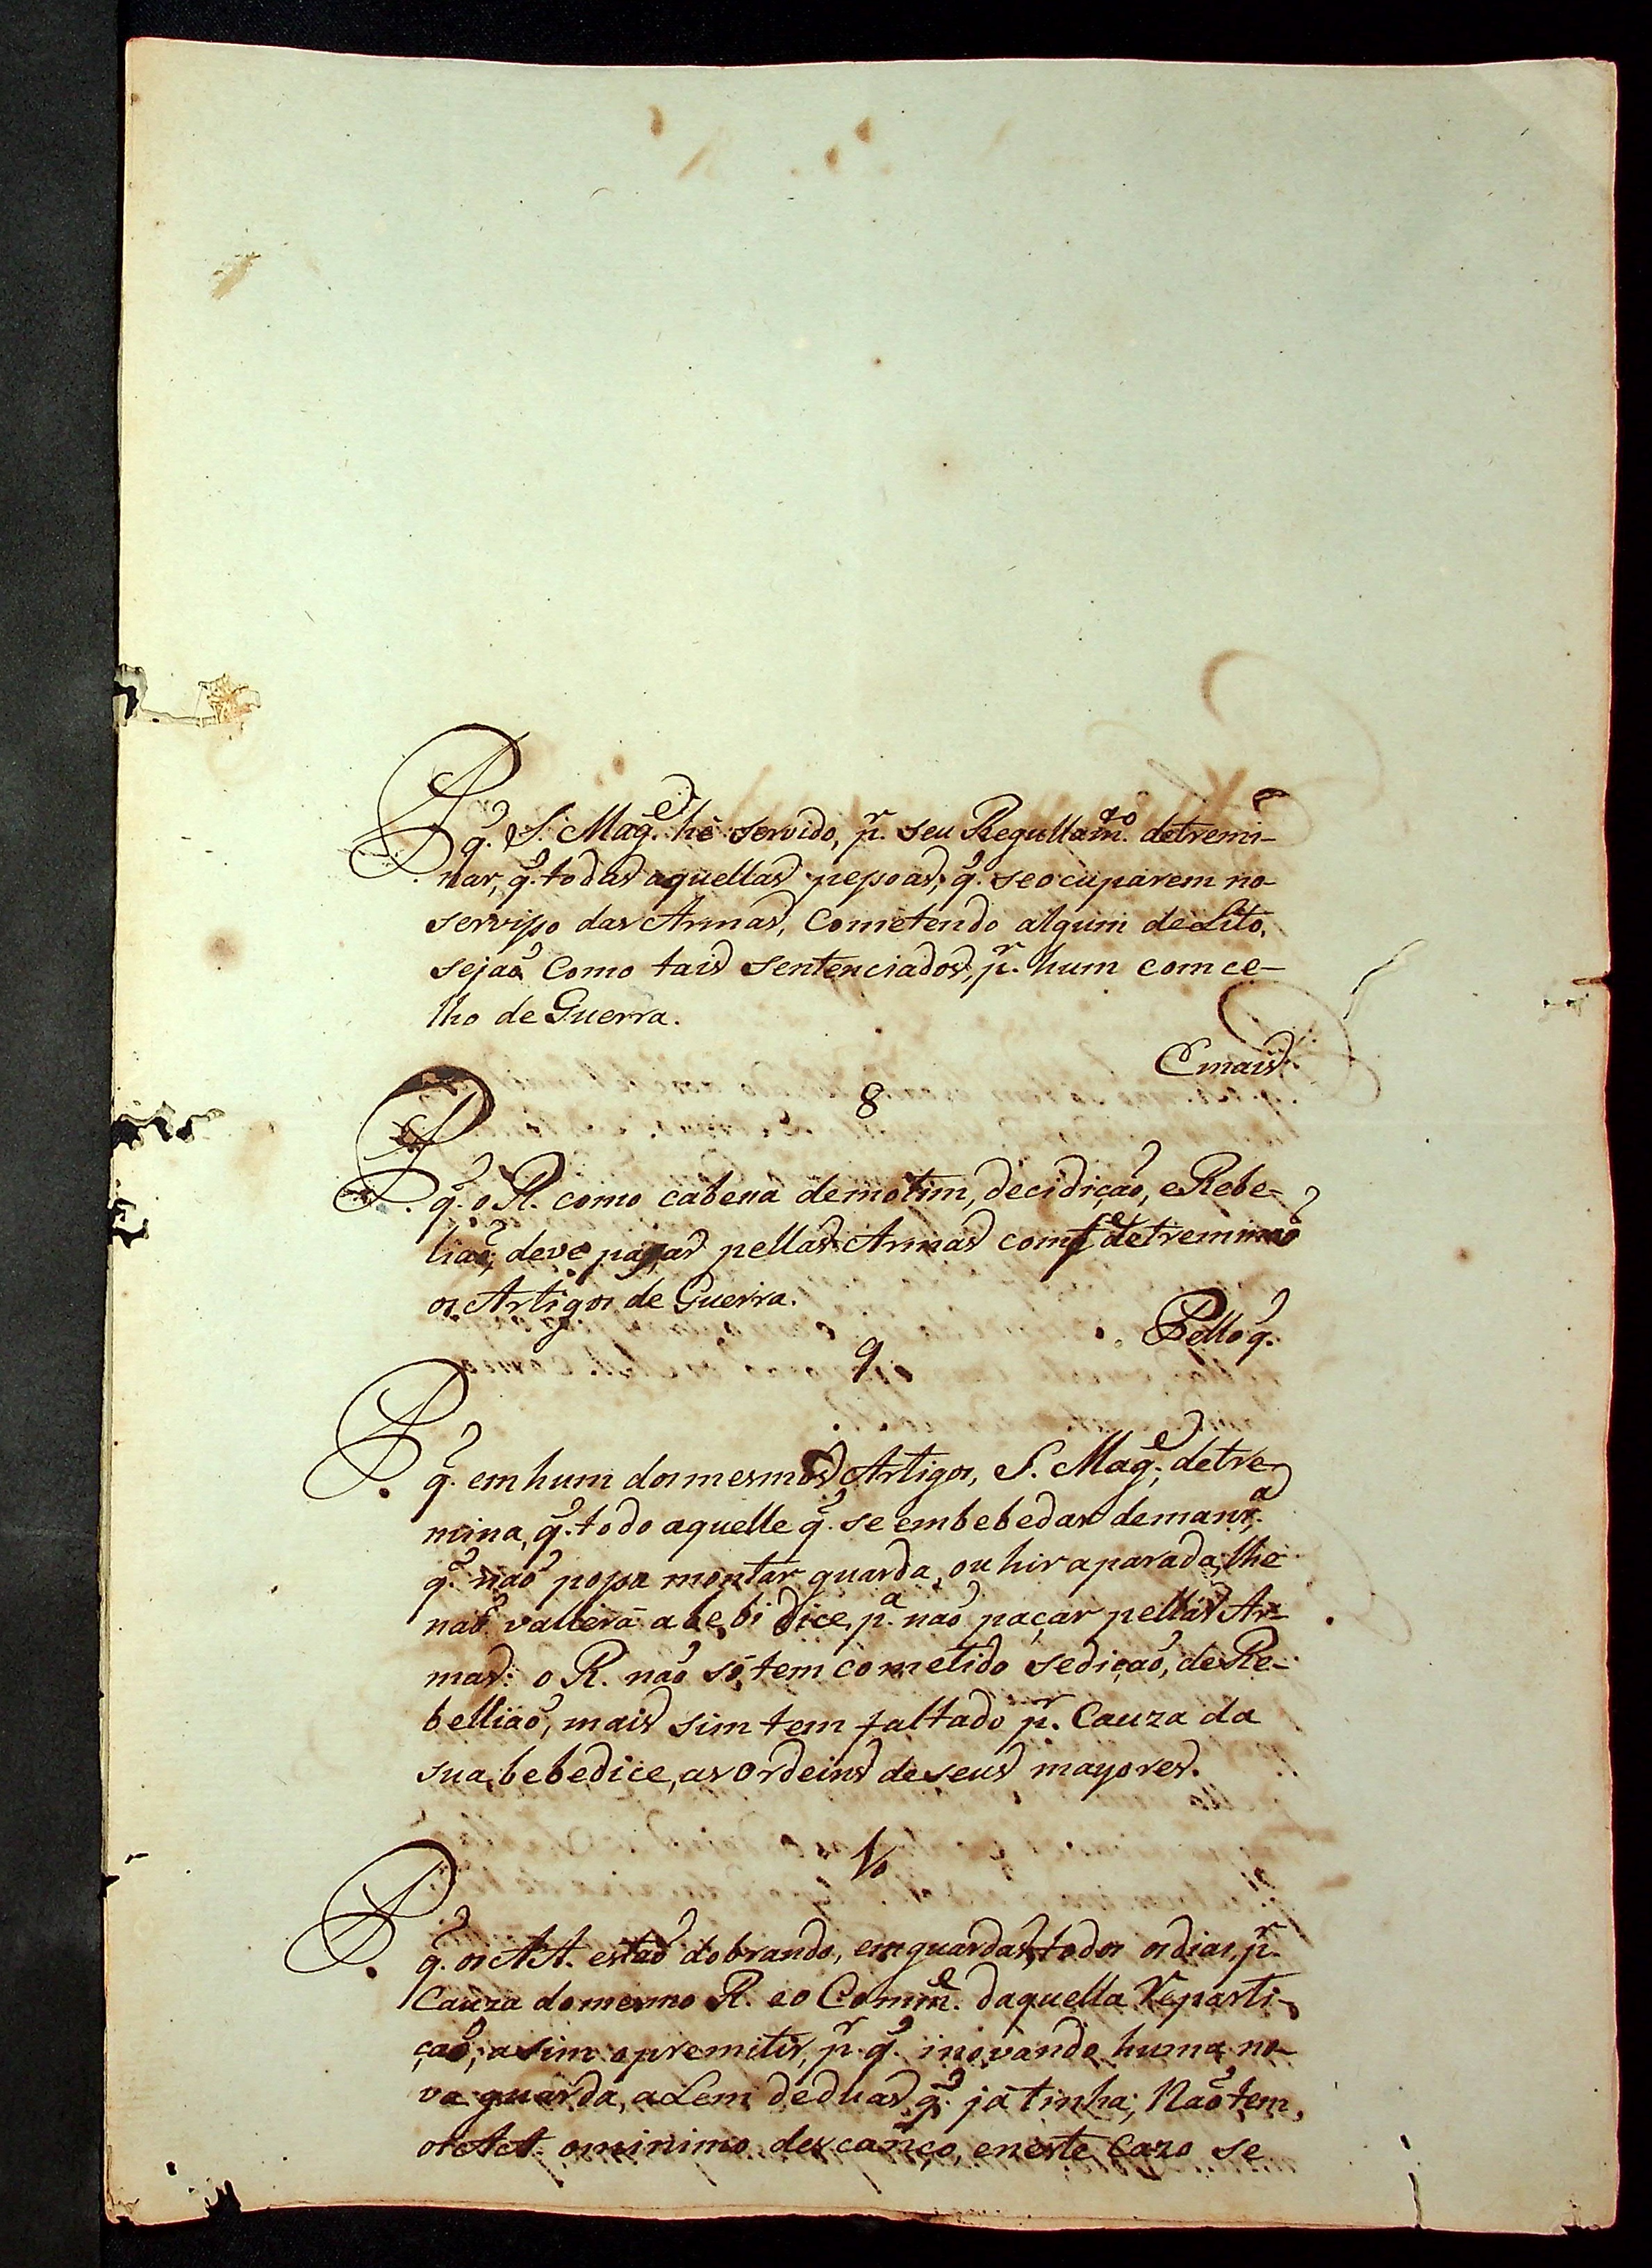 P. q. S. Mag.e hé servido, p.r seu Regullam.to detremi-
nar, q. todas aquellas pessoas, q. seocuparem no
servisso das Armas, Cometendo algum delito,
sejaõ Como tais sentenciados, p.r hum comce-
lho de Guerra.
Emais
8
P. q. o R. como cabeua demotim, decidiçaõ, e Rebe-
liaõ, deve pasar pellas Armas comf.e detreminaõ
os Artigos de Guerra.
Pello q.
9
P. q. em hum dos mesmos Artigos, S. Mag.e, detre-
mina, q. todo aquelle q. se embebedar demanr.a
q. naõ possa montar guarda, ou hir aparada, lhe
naõ vallerá abebidice, p.a naõ paçar pellas Ar-
mas: o R. naõ só, tem cometido sediçaõ, de Re-
belliaõ, mais sim tem faltado p.r Cauza da
sua bebedice, as Ordeins de seus mayores.
10
P. q. os AA. estaõ dobrando, em guardas, todos os dias, p.r
Cauza do mesmo R. e o Comm.e daquella Reparti-
çaõ, asim opremitir, p.r q. inovando huma no-
va guarda, alem deduas q. já tinha, Naõ tem,
os AA. o minimo descanço, eneste Cazo se